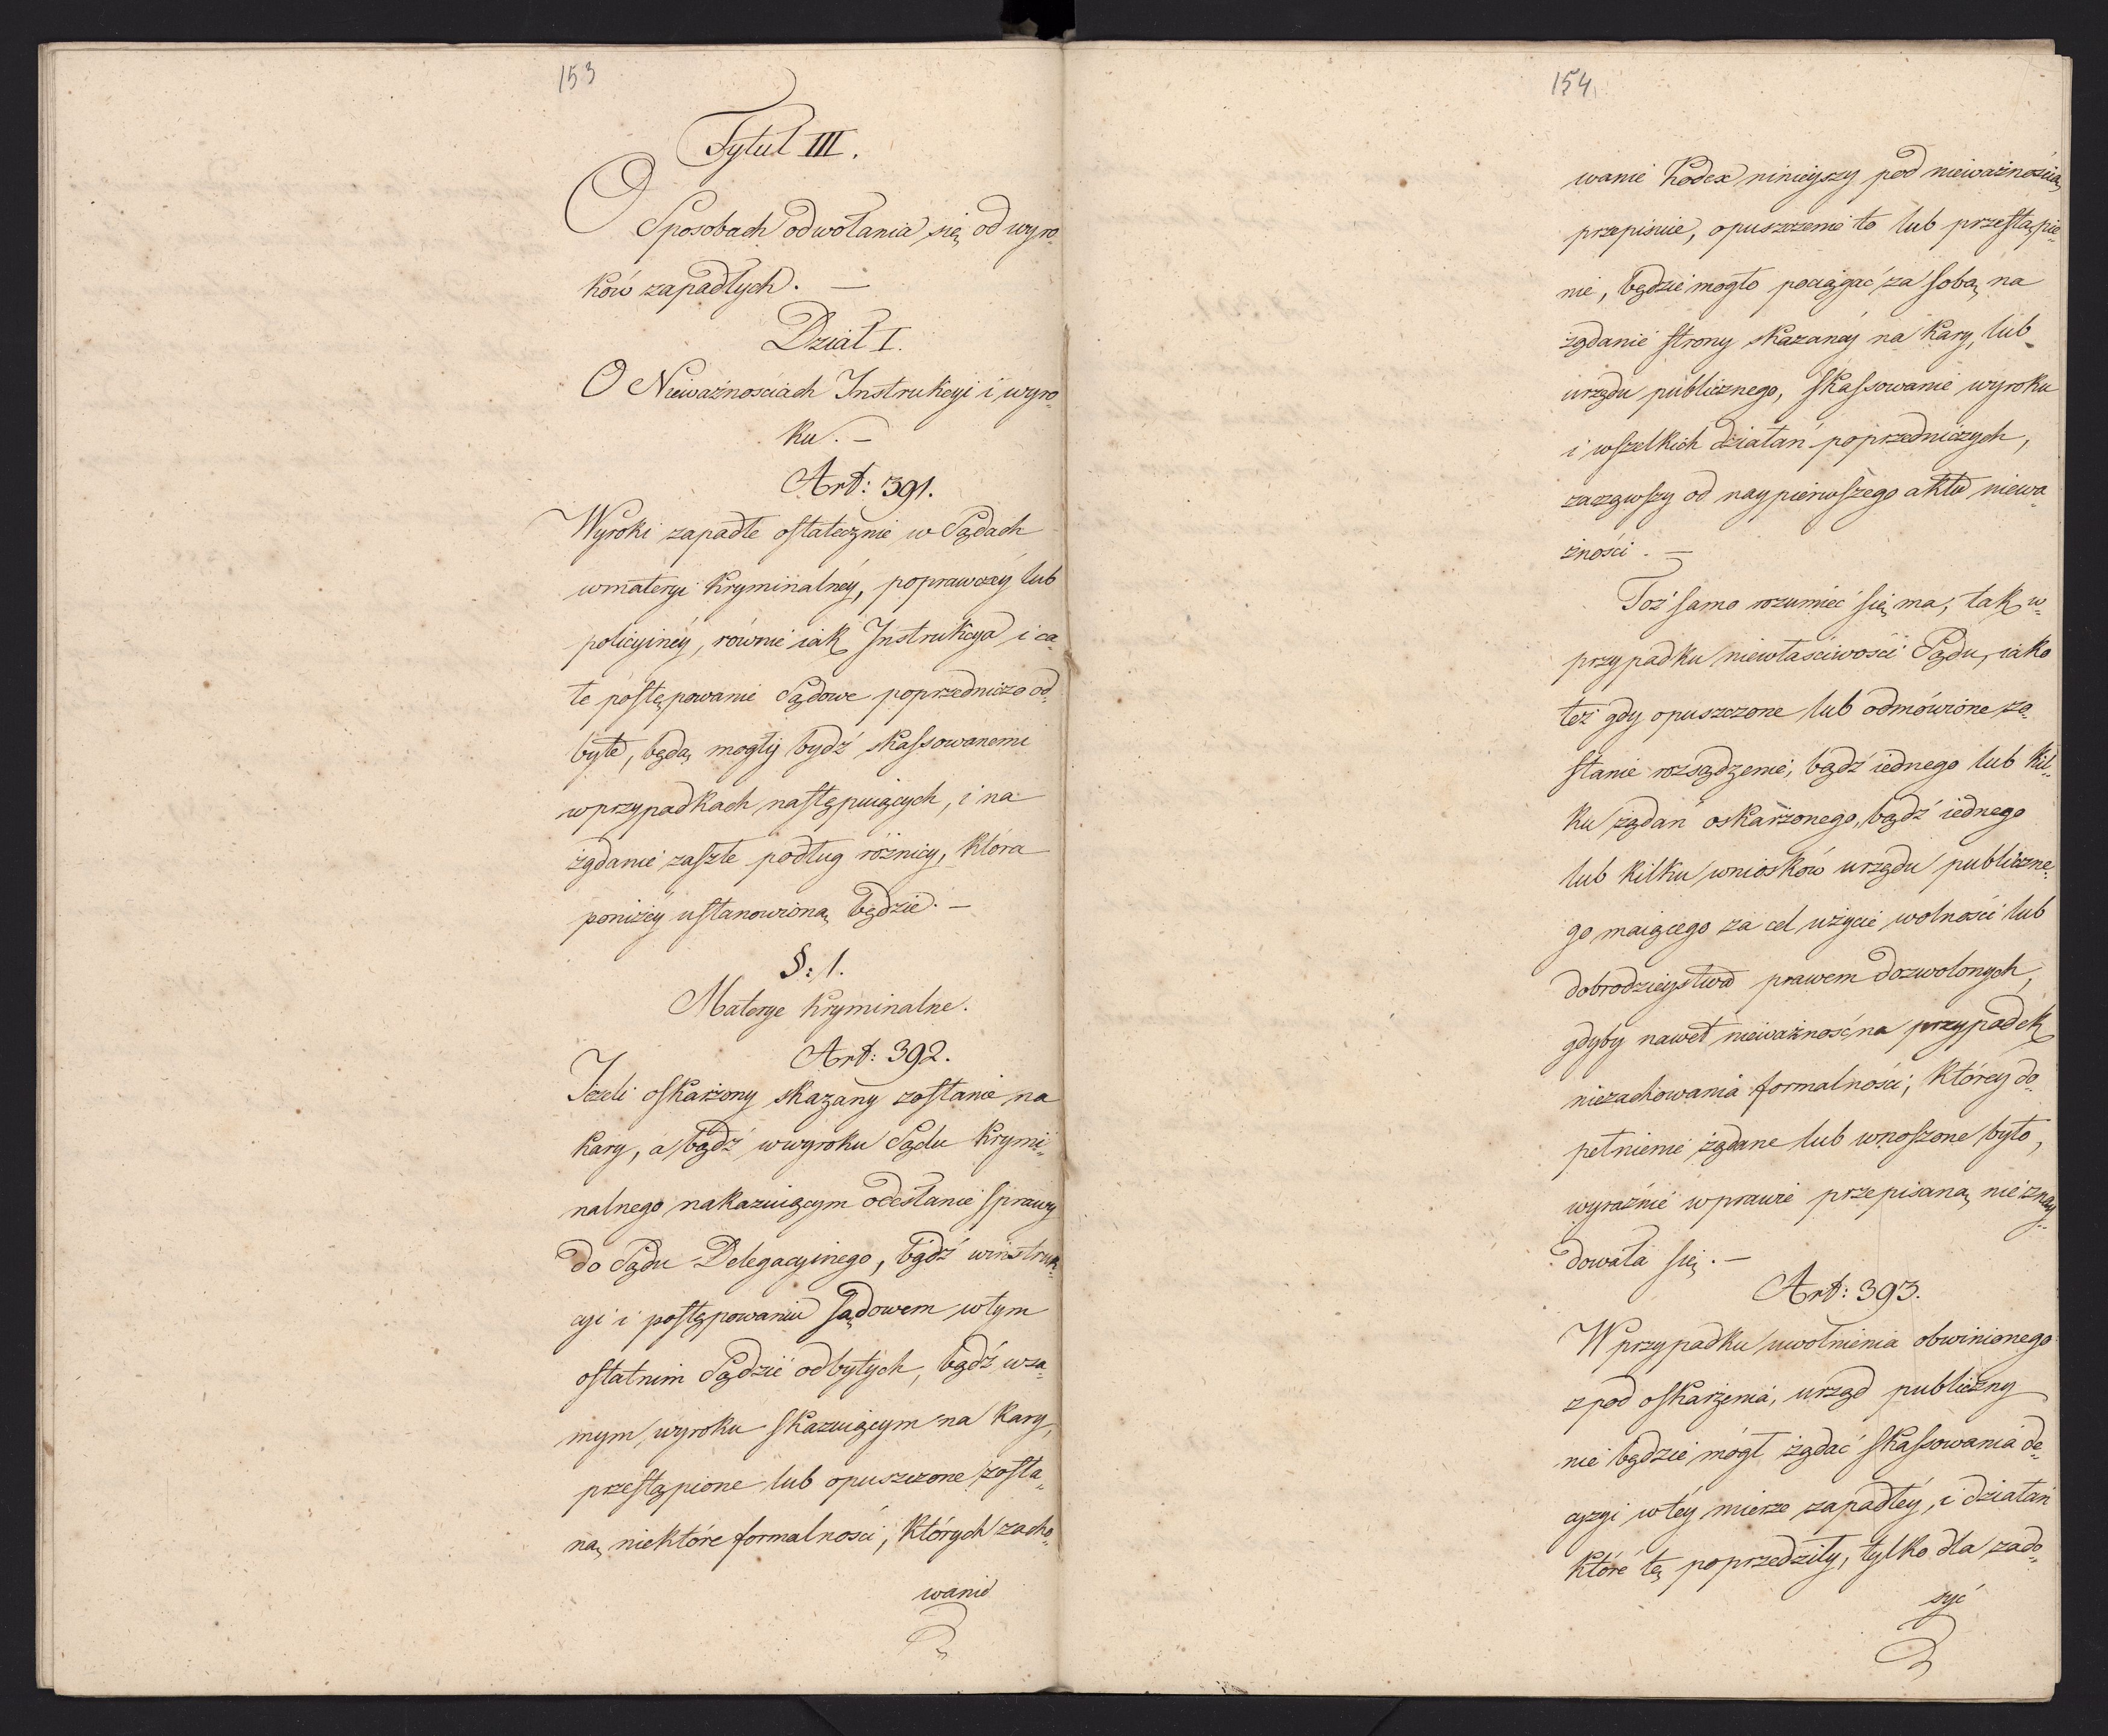 153
Tytuł III.
O
Sposobach odwołania się od wyro„
ków zapadłych. —
Dział I.
O Nieważnościach Instrukcyi i wyro„
ku. —
Art: 391.
Wyroki zapadłe ostatecznie w Sądach
wmateryi Kryminalnéy, poprawczéy lub
policyinéy, równie iak Instrukcya i ca„
łe postępowanie Sądowe poprzedniczo od„
byłe, będą mogły bydź skassowanemi
wprzypadkach następuiących, i na
żądanie zaszłe podług różnicy, która
poniżéy ustanowioną będzie. —
§: 1.
Materye Kryminalne.
Art: 392.
Jeżeli oskarżony skazany zostanie na
kary, a bądź wwyroku Sądu Krymi„
nalnego nakazuiącym odesłanie sprawy
do Sądu Delegacyinego, bądź winstruk„
cyi i postępowaniu sądowem wtym
ostatnim Sądzie odbytych, bądź wsa„
mym wyroku skazuiącym na kary,
przestąpione lub opuszczone zosta„
ną niektóre formalności, których zacho„
wanie
154
wanie Kodex ninieyszy pod nieważnością
przepisuie, opuszczenie to lub przestąpie„
nie, będzie mogło pociągać za sobą na
żądanie strony skazanéy na kary, lub
urzędu publicznego, skassowanie wyroku
i wszelkich działań poprzedniczych,
zacząwszy od naypierwszego aktu niewa„
żności. —
Toż samo rozumieć się ma, tak w„
przypadku niewłaściwości Sądu, iako
też gdy opuszczone lub odmówione zo„
stanie rozsądzenie, bądź iednego lub kil„
ku żądań oskarżonego, bądź iednego
lub kilku wniosków urzędu publiczne„
go maiącego za cel użycie wolności lub
dobrodzieystwa prawem dozwolonych,
gdyby nawet nieważność na przypadek
niezachowania formalności, któréy do„
pełnienie żądane lub wnoszone było,
wyraźnie wprawie przepisaną nie znay„
dowała się. —
Art: 393.
W przypadku uwolnienia obwinionego
z pod oskarżenia, urząd publiczny
nie będzie mógł żądać skassowania de„
cyzyi wtéy mierze zapadłéy, i działań
które tę poprzedziły, tylko dla zado„
syć